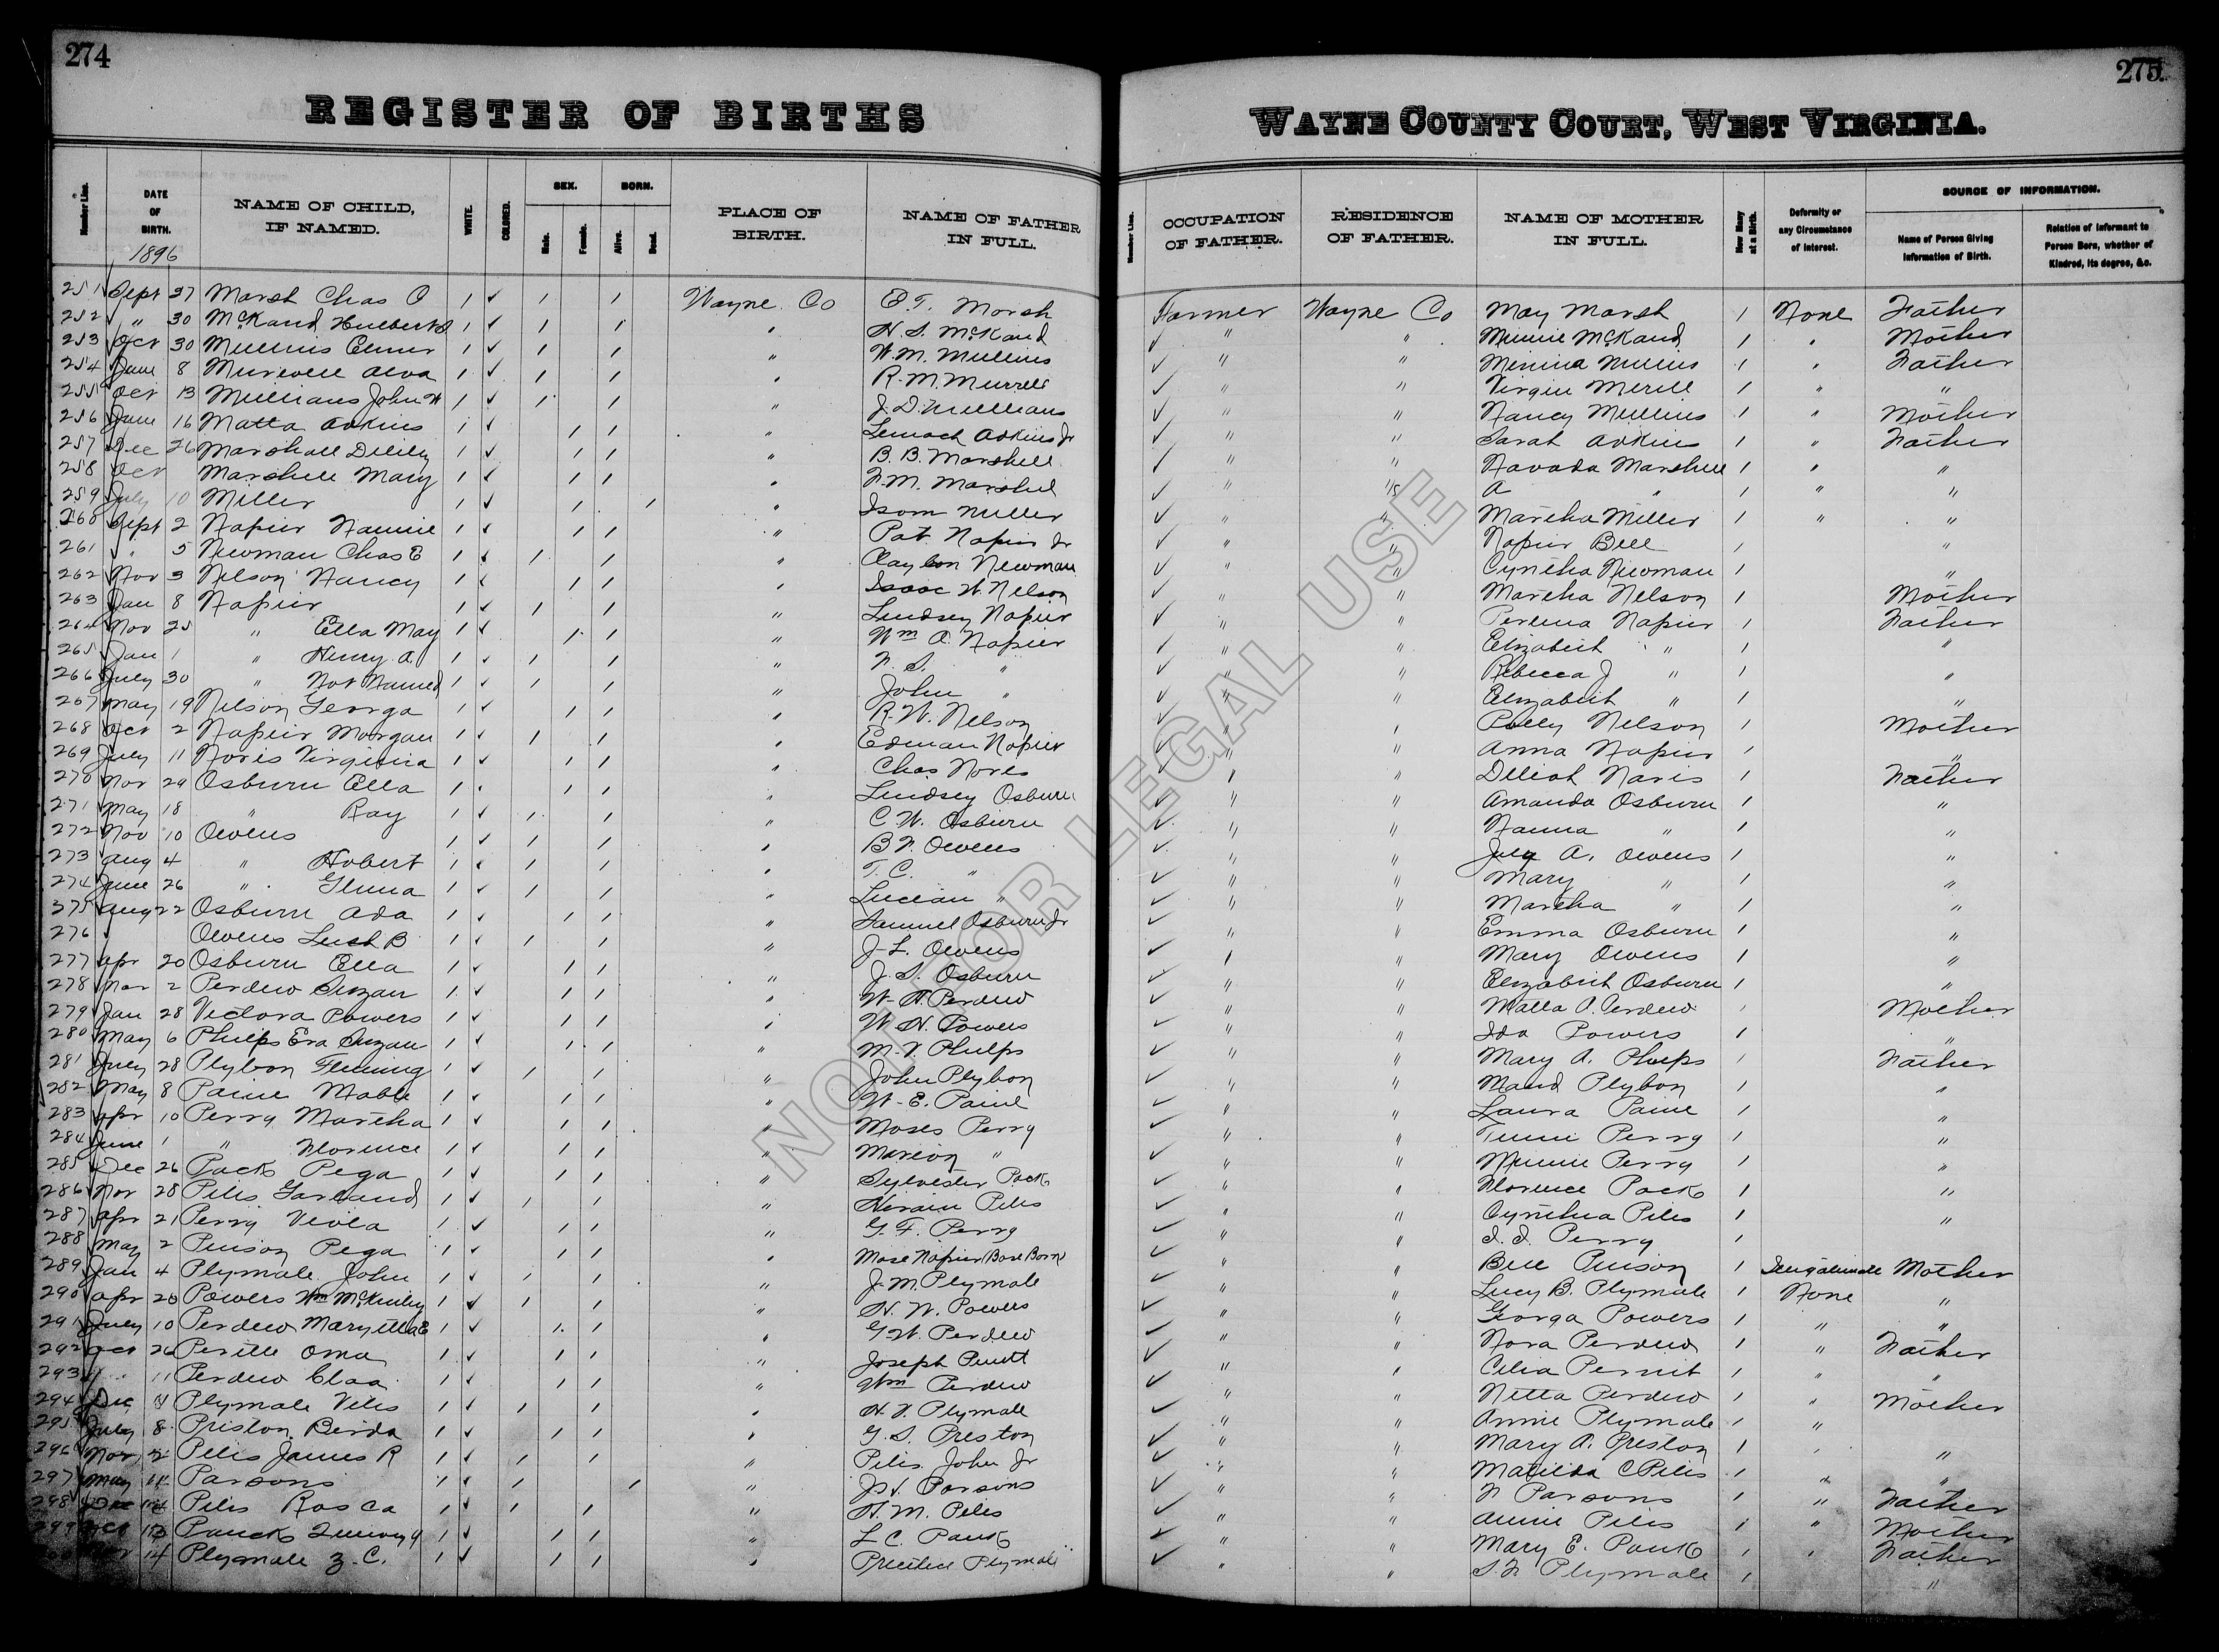 274
REGISTER OF BIRTHS
Number Line.
DATE OF BIRTH.
1896
NAME OF CHILD, IF NAMED.
WHITE.
COLORED.
SEX.
Male.
Female.
BORN.
Alive.
Dead.
PLACE OF BIRTH.
NAME OF FATHER IN FULL.
251 Sept 27 Marsh Chas O 1 ✓ 1 1 Wayne Co E. T. Marsh
252 " 30 McKand 1 ✓ 1 1 " H. S. McKand
253 Oct 30 Mullins Elmer 1 ✓ 1 1 " W. M. Mullins
254 June 8 Alva 1 ✓ 1 1 " R. M. Murrell
255 Oct 13 John 1 ✓ 1 1 " J. D.
256 June 16 Matta Adkins 1 ✓ 1 1 " Adkins Jr
257 Dec 26 Marshall 1 ✓ 1 1 " B. B. Marshell
258 Oct Marshell Mary 1 ✓ 1 1 " Marshel
259 July 10 Miller 1 ✓ 1 1 " Isom Miller
260 Sept 2 Napier Nannie 1 ✓ 1 1 " Pat. Napier Jr
261 " 5 Newman Chas E 1 ✓ 1 1 " Clayton Newman
262 Nov 3 Nelson Nancy 1 ✓ 1 1 " Isaac W. Nelson
263 Jan 8 Napier 1 ✓ 1 1 " Lindsey Napier
264 Nov 25 " Ella May 1 ✓ 1 1 " Wm A. Napier
265 Jan 1 " Henry A. 1 ✓ 1 1 " "
266 July 30 " Not Named 1 ✓ 1 1 " John "
267 May 19 Nelson Georga 1 ✓ 1 1 " R. W. Nelson
268 Oct 2 Napier Morgan 1 ✓ 1 1 " Edman Napier
269 July 11 Noris Virginia 1 ✓ 1 1 " Chas Nores
270 Nov 29 Osburn Ella 1 1 1 " Lindsey Osburn
271 May 18 " Ray 1 ✓ 1 1 " C. W. Osburn
272 Nov 10 Owens 1 ✓ 1 1 " Owens
273 Aug 4 " Hobert 1 ✓ 1 1 " T. C. "
274 June 26 " 1 ✓ 1 1 " Lucian "
275 Aug 22 Osburn Ada 1 ✓ 1 1 " Samuel Osburn Jr
276 Owens B 1 ✓ 1 1 " J. L. Owens
277 Apr 20 Osburn Ella 1 ✓ 1 1 " J. S. Osburn
278 Mar 2 Perdew Suzan 1 ✓ 1 1 " Perdew
279 Jan 28 Victora Powers 1 ✓ 1 1 " W. H. Powers
280 May 6 Phelps Eva Suzan 1 ✓ 1 1 " M. V. Phelps
281 July 28 Plybon Fleming 1 ✓ 1 1 " John Plybon
282 May 8 Paine Mable 1 ✓ 1 1 " W. E. Paine
283 Apr 10 Perry Martha 1 ✓ 1 1 " Moses Perry
284 June 1 " Florence 1 ✓ 1 1 " Marion "
285 Dec 26 Pack Pega 1 ✓ 1 1 " Sylvester Pack
286 Nov 28 Piles Garland 1 ✓ 1 1 " Hiram Piles
287 Apr 21 Perry Viola 1 ✓ 1 1 " G. F. Perry
288 May 2 Pinson Pega 1 ✓ 1 1 " Mose Napier (Base Born)
289 Jan 4 Plymale John 1 ✓ 1 1 " J. M. Plymale
290 Apr 20 Powers Wm McKinley 1 ✓ 1 1 " H. W. Powers
291 July 10 Perdew Mary 1 ✓ 1 1 " G. W. Perdew
292 Oct 26 Oma 1 ✓ 1 1 " Joseph
293 " 11 Perdew 1 ✓ 1 1 " Wm Perdew
294 Dec Plymale 1 ✓ 1 1 " H. V. Plymale
295 July 8 Preston Birda 1 ✓ 1 1 " G. S. Preston
296 Nov 2 Piles James R 1 ✓ 1 1 " Piles John Jr
297 May Parsons 1 ✓ 1 1 " Parsons
298 Piles Rosca 1 ✓ 1 1 " H. M. Piles
299 1 ✓ 1 1 " L. C.
14 Plymale Z. C. 1 ✓ 1 1 " Plymale
275
WAYNE COUNTY COURT, WEST VIRGINIA.
Number Line.
OCCUPATION OF FATHER.
RESIDENCE OF FATHER.
NAME OF MOTHER IN FULL.
How Many at a Birth.
Deformity or any Circumstance of Interest.
SOURCE OF INFORMATION.
Name of Person Giving Information of Birth.
Relation of Informant to Person Born, whether of Kindred, its degree, &c.
Farmer Wayne Co May Marsh 1 None Father
✓ " " Minnie McKand 1 " Mother
✓ " " 1 " Father
✓ " " Merill 1 " "
✓ " " Nancy Mullins 1 " Mother
✓ " " Sarah Adkins 1 " Father
✓ " " Navada Marshell 1 " "
✓ " " A " 1 " "
✓ " " Martha Miller 1 " "
✓ " " Napier Bell 1 "
✓ " " Cyntha Newman 1 "
✓ " " Martha Nelson 1 Mother
✓ " " Napier 1 Father
✓ " " Elizabeth " 1 "
✓ " " Rebecca J " 1 "
✓ " " Elizabeth " 1 "
✓ " " Polly Nelson 1 Mother
✓ " " Anna Napier 1 "
✓ " " Naris 1 Father
✓ " " Amanda Osburn 1 "
✓ " " Nanna " 1 "
✓ " " July A. Owens 1 "
✓ " " Mary " 1 "
✓ " " Martha " 1 "
✓ " " Emma Osburn 1 "
✓ " " Mary Owens 1 "
✓ " " Elizabeth Osburn 1 "
✓ " " Perdew 1 Mother
✓ " " Ida Powers 1 "
✓ " " Mary A. Phelps 1 Father
✓ " " Maud Plybon 1 "
✓ " " Laura Paine 1 "
✓ " " Perry 1 "
✓ " " Minnie Perry 1 "
✓ " " Florence Pack 1 "
✓ " " Cynthia Piles 1 "
✓ " " Perry 1
✓ " " Bell Pinson 1 Illegatimate Mother
✓ " " Lucy B. Plymale 1 None "
✓ " " Georga Powers 1 " "
✓ " " Nora Perdew 1 " Father
✓ " " Celia 1 " "
✓ " " Netta Perdew 1 " Mother
✓ " " Annie Plymale 1 "
✓ " " Mary A. Preston 1 " "
✓ " " Matilda C Piles 1 " "
✓ " " Parsons 1 " Father
✓ " " Annie Piles 1 " Mother
✓ " " Mary E. 1 " Father
✓ " " Plymale 1 "
NOT FOR LEGAL USE